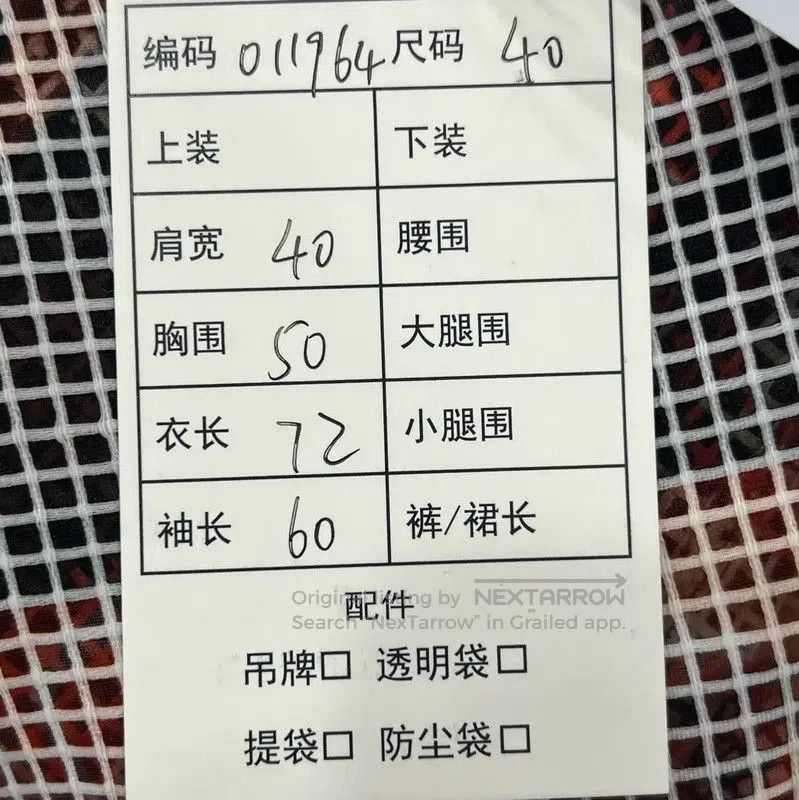 编码 011964 尺码 40
上装 下装
肩宽 40 腰围
胸围 50 大腿围
衣长 72 小腿围
袖长 60 裤/裙长
配件
Original listing by NEXTARROW
Search "NexTarrow" in Grailed app.
吊牌□ 透明袋□
提袋□ 防尘袋□